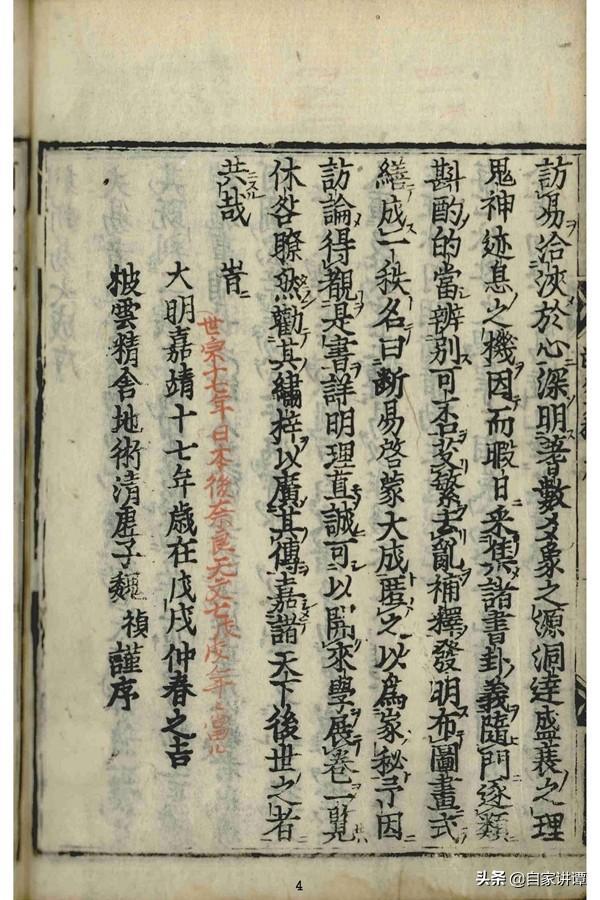 訪易洽浹於心深明蓍數爻象之源洞達盛衰之理
鬼神迹息之機因而暇日采集諸書卦義隨門逐類
斟酌的當辨別可否芟繁去亂補釋發明布圖畫式
繕成一秩名曰斷易啓蒙大成匿之以為家秘予因
訪論得觀是書詳明理直誠可以開來學展卷一覧
休咎瞭然勸其繡梓以廣其傳嘉諸天下後世之者
共哉 旹
世宗十七年日本後奈良天文七戊戌年ニ當ル
大明嘉靖十七年歲在戊戌仲春之吉
披雲精舍地術清唐子魏 禎謹序
4
头条 @自家讲谭